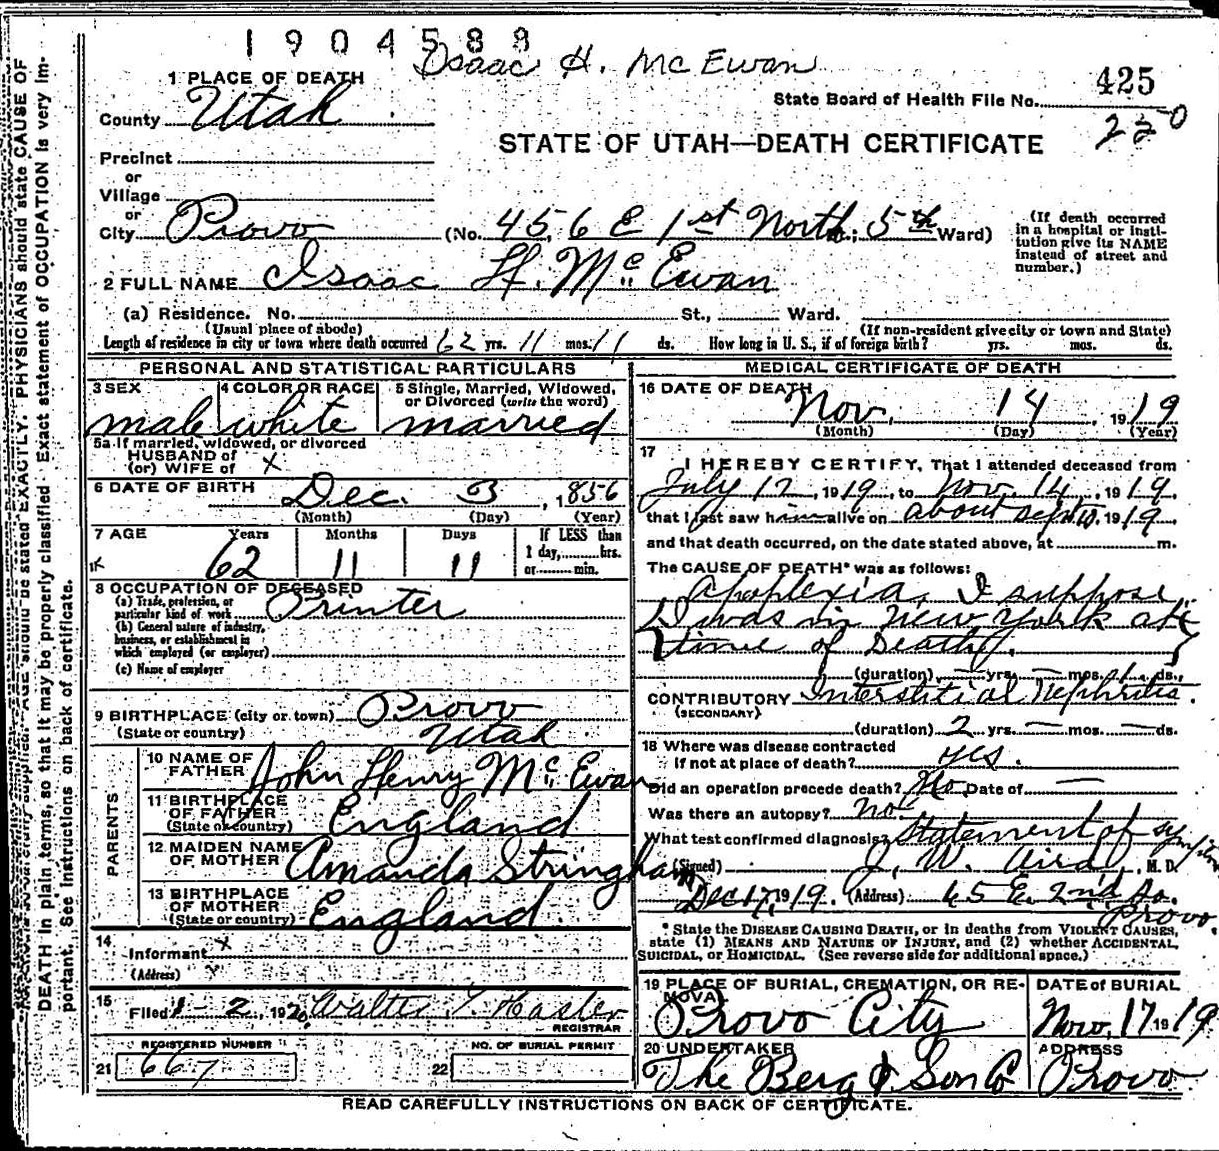 1904588
Isaac H. McEwan
1 PLACE OF DEATH
425
State Board of Health File No.
220
County Utah
STATE OF UTAH—DEATH CERTIFICATE
Precinct
or
Village
or
City Provo (No. 456 E 1st North; 5th Ward)
(If death occurred in a hospital or institution give its NAME instead of street and number.)
2 FULL NAME Isaac H. McEwan
(a) Residence. No. St., Ward.
(Usual place of abode) (If non-resident give city or town and State)
Length of residence in city or town where death occurred 62 yrs. 11 mos. 11 ds. How long in U. S., if of foreign birth? yrs. mos. ds.
PERSONAL AND STATISTICAL PARTICULARS
3 SEX 4 COLOR OR RACE 5 Single, Married, Widowed, or Divorced (write the word)
male white married
5a If married, widowed, or divorced
HUSBAND of
(or) WIFE of X
6 DATE OF BIRTH Dec. 3, 1856
(Month) (Day) (Year)
7 AGE Years Months Days If LESS than
1 day, hrs.
or min.
62 11 11
8 OCCUPATION OF DECEASED
(a) Trade, profession, or particular kind of work Printer
(b) General nature of industry, business, or establishment in which employed (or employer)
(c) Name of employer
9 BIRTHPLACE (city or town) Provo
(State or country) Utah
PARENTS
10 NAME OF FATHER John Henry McEwan
11 BIRTHPLACE OF FATHER
(State or country) England
12 MAIDEN NAME OF MOTHER Amanda Stringham
13 BIRTHPLACE OF MOTHER
(State or country) England
14 Informant X
(Address) X
15 Filed 1-2, 1920 Walter T. Hasler
REGISTRAR
REGISTERED NUMBER NO. OF BURIAL PERMIT
21 667 22
MEDICAL CERTIFICATE OF DEATH
16 DATE OF DEATH
Nov. 14, 1919
(Month) (Day) (Year)
17
I HEREBY CERTIFY, That I attended deceased from
July 12, 1919, to Nov. 14, 1919,
that I last saw him alive on about Sept 10, 1919
and that death occurred, on the date stated above, at m.
The CAUSE OF DEATH* was as follows:
apoplexia, I suppose
(I was in New York at
time of Death).
(duration) — yrs. — mos. 1 ds.
CONTRIBUTORY Interstitial Nephritis
(SECONDARY)
(duration) 2 yrs. — mos. — ds.
18 Where was disease contracted
If not at place of death? yes.
Did an operation precede death? No Date of —
Was there an autopsy? no.
What test confirmed diagnosis? Statement of symptoms
(Signed) J. W. Aird, M. D.
Dec 17, 1919. (Address) 65 E. 2nd So.
Provo.
* State the DISEASE CAUSING DEATH, or in deaths from VIOLENT CAUSES,
state (1) MEANS AND NATURE OF INJURY, and (2) whether ACCIDENTAL,
SUICIDAL, or HOMICIDAL. (See reverse side for additional space.)
19 PLACE OF BURIAL, CREMATION, OR REMOVAL DATE of BURIAL
Provo City Nov, 17 1919
20 UNDERTAKER ADDRESS
The Berg & Son Co Provo
READ CAREFULLY INSTRUCTIONS ON BACK OF CERTIFICATE.
AGE should be stated EXACTLY. PHYSICIANS should state CAUSE OF
DEATH in plain terms, so that it may be properly classified. Exact statement of OCCUPATION is very important. See instructions on back of certificate.